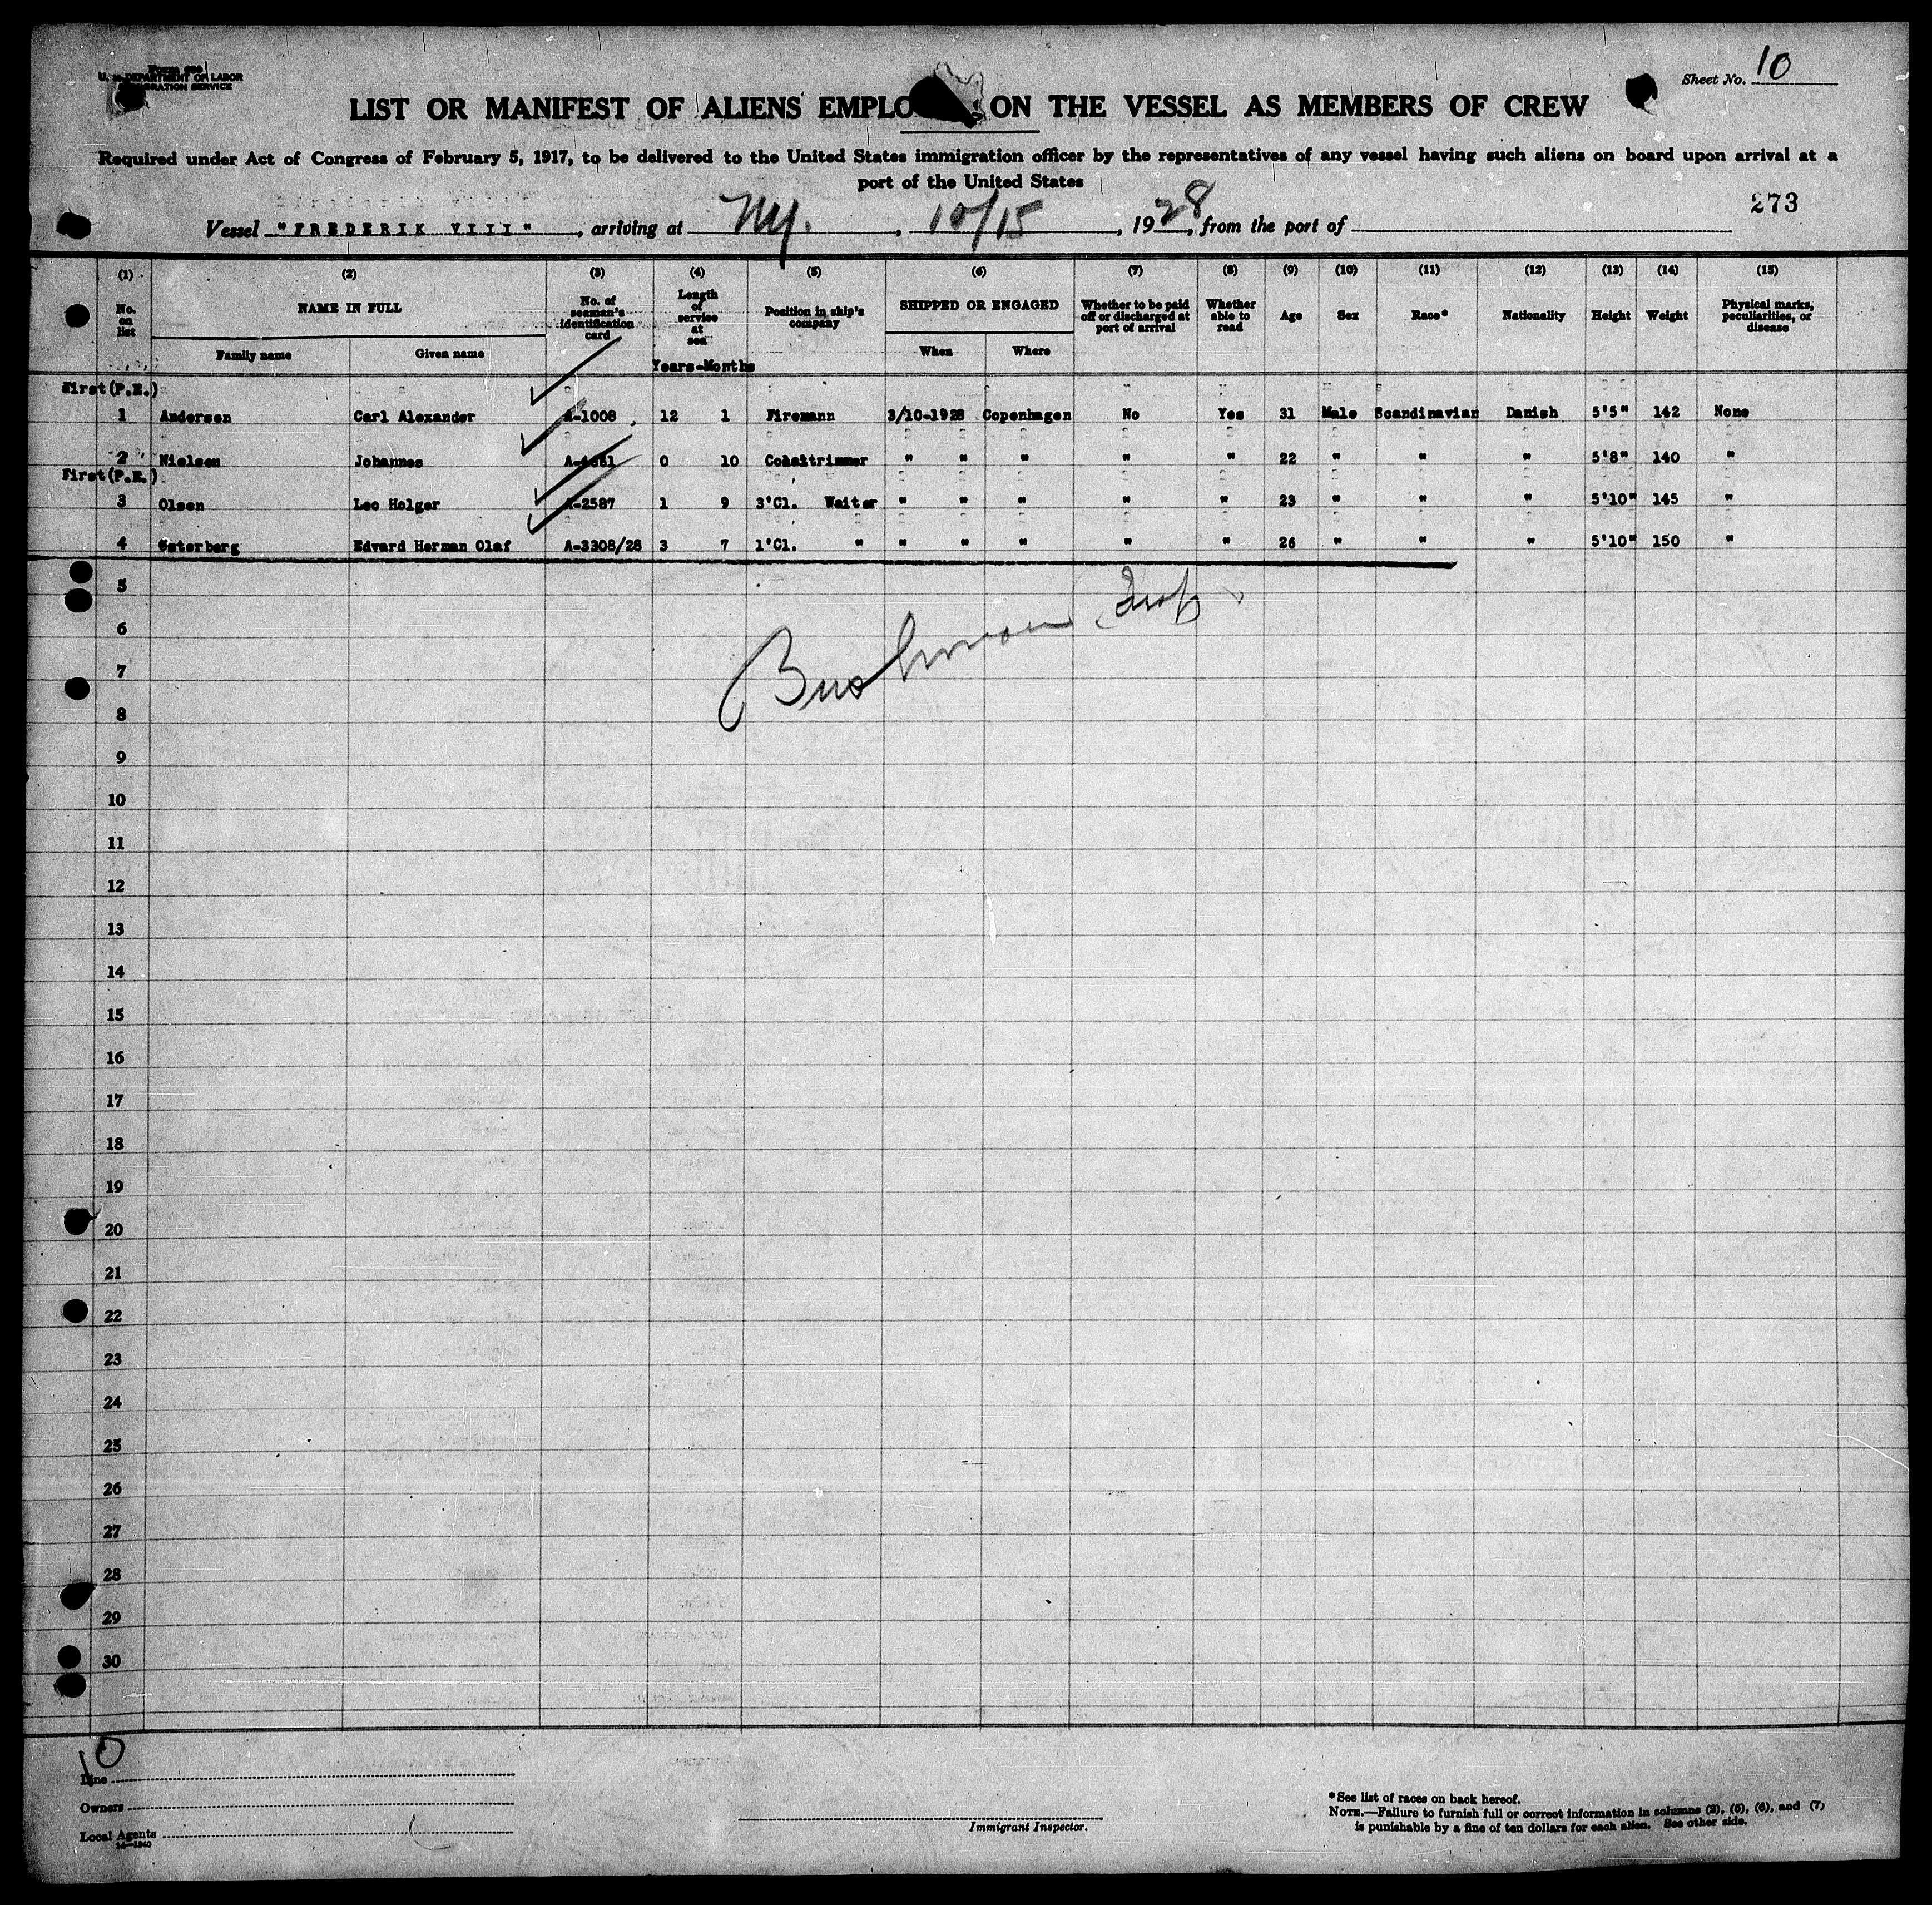 U. S. DEPARTMENT OF LABOR
IMMIGRATION SERVICE
Sheet No. 10
LIST OR MANIFEST OF ALIENS EMPLO ON THE VESSEL AS MEMBERS OF CREW
Required under Act of Congress of February 5, 1917, to be delivered to the United States immigration officer by the representatives of any vessel having such aliens on board upon arrival at a
port of the United States
273
Vessel "FREDERIK VIII", arriving at NY., 10/15, 1928, from the port of
(1) (2) (3) (4) (5) (6) (7) (8) (9) (10) (11) (12) (13) (14) (15)
No. on list NAME IN FULL No. of seaman's identification card Length of service at sea Position in ship's company SHIPPED OR ENGAGED Whether to be paid off or discharged at port of arrival Whether able to read Age Sex Race* Nationality Height Weight Physical marks, peculiarities, or disease
Family name Given name Years-Months When Where
First(P.E.)
1 Andersen Carl Alexander A-1008 12 1 Firemann 3/10-1928 Copenhagen No Yes 31 Male Scandinavian Danish 5'5" 142 None
2 Nielsen Johannes 0 10 " " " " " 22 " " " 5'8" 140 "
First(P.E.)
3 Olsen Leo Holger A-2587 1 9 3'Cl. Waiter " " " " " 23 " " " 5'10" 145 "
4 Østerberg Edvard Herman Olaf A-3308/28 3 7 1'Cl. " " " " " " 26 " " " 5'10" 150 "
5
6
7
8
9
10
11
12
13
14
15
16
17
18
19
20
21
22
23
24
25
26
27
28
29
30
10
Line
Owners
Local Agents
Immigrant Inspector.
*See list of races on back hereof.
NOTE.—Failure to furnish full or correct information in columns (2), (5), (6), and (7)
is punishable by a fine of ten dollars for each alien. See other side.